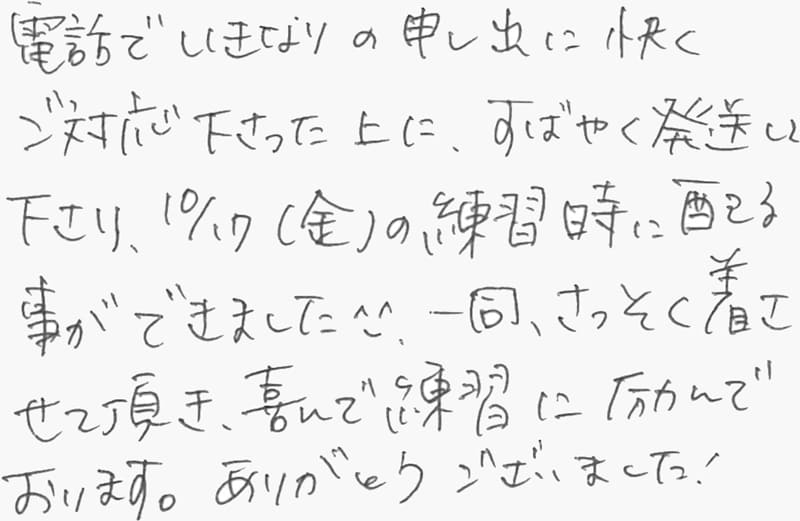 電話でいきなりの申し出に快く
ご対応下さった上に、すばやく発送い
下さり、10/17(金)の練習時に配る
事ができました^^. 一同、さっそく着さ
せて頂き、喜んで練習に励んで
おります。ありがとうございました!